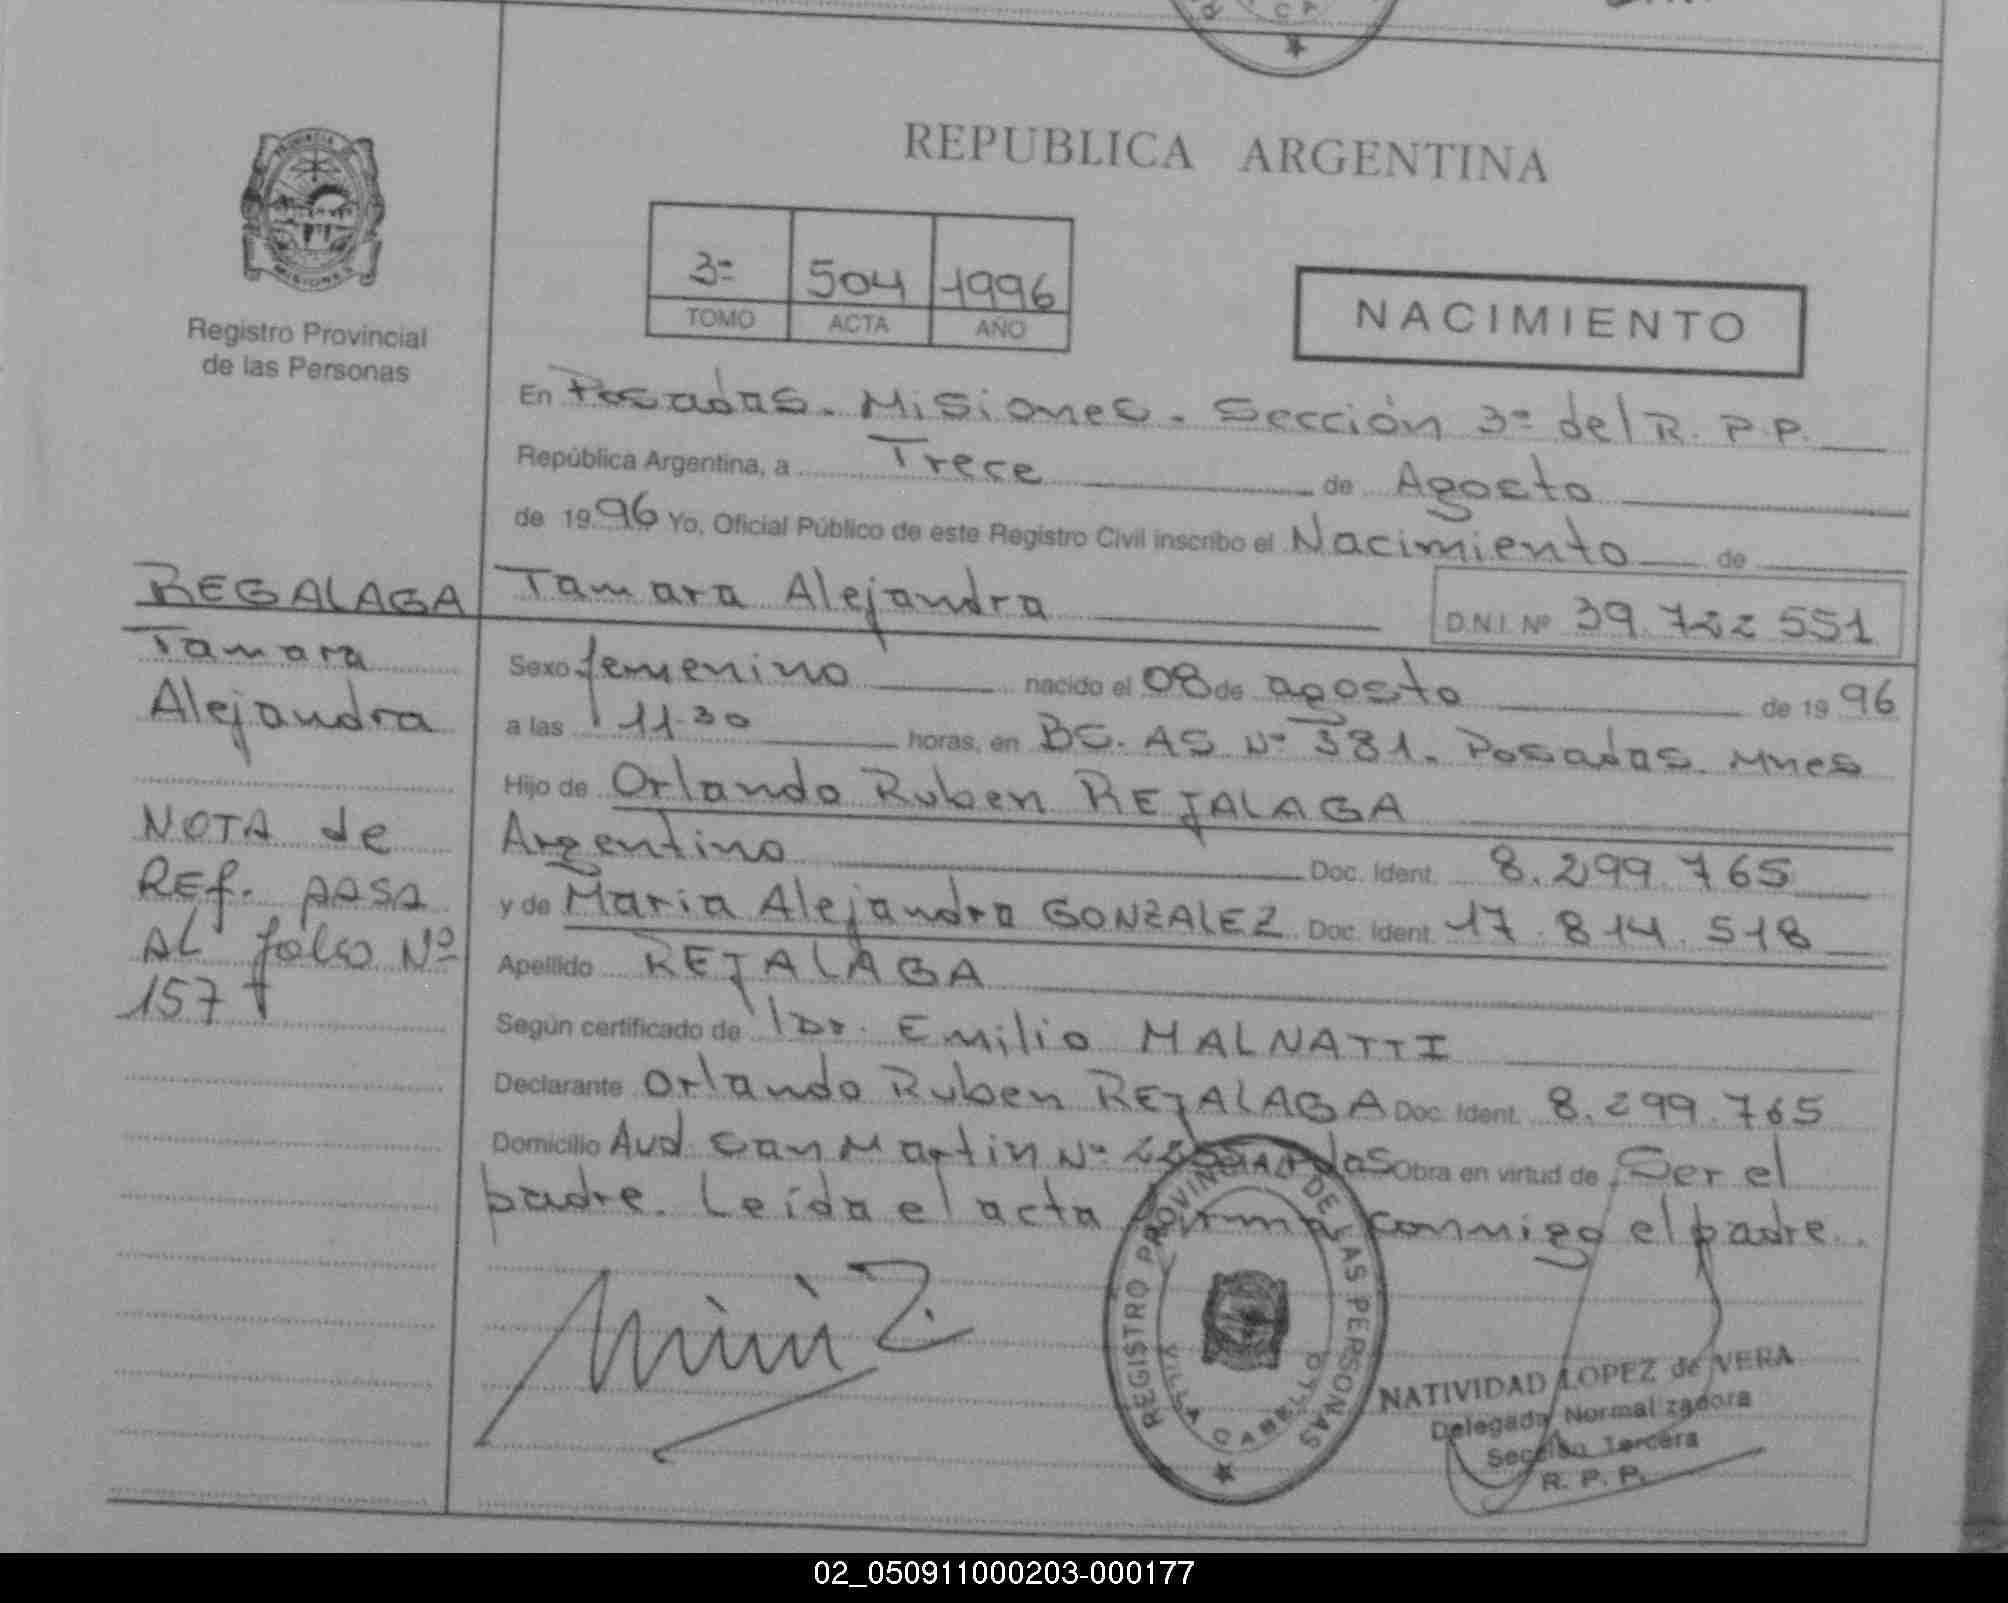 REPUBLICA ARGENTINA
PROVINCIA
MISIONES
Registro Provincial
de las Personas
3ª 504 1996
TOMO ACTA AÑO
NACIMIENTO
En Posadas. Misiones. Sección 3ª del R. P. P.
República Argentina, a Trece de Agosto
de 1996 Yo, Oficial Público de este Registro Civil inscribo el Nacimiento de
Tamara Alejandra D.N.I. Nº 39.722 551
REGALAGA
Tamara
Alejandra
NOTA de
REf. PASA
AL folio Nº
157
Sexo femenino nacido el 08 de agosto de 1996
a las 11.30 horas, en BS. AS Nº 381. Posadas. Mnes
Hijo de Orlando Ruben REJALAGA
Argentino Doc. Ident. 8.299.765
y de Maria Alejandra GONZALEZ Doc. Ident. 17.814.518
Apellido REJALAGA
Según certificado de Dr. Emilio MALNATTI
Declarante Orlando Ruben REJALAGA Doc. Ident. 8.299.765
Domicilio Avd. San Martin Nº Obra en virtud de Ser el
padre. Leída el acta firma conmigo el padre.
REGISTRO PROVINCIAL DE LAS PERSONAS
VILLA CABELLO
NATIVIDAD LOPEZ de VERA
Delegada Normalizadora
Sección Tercera
R. P. P.
02_050911000203-000177